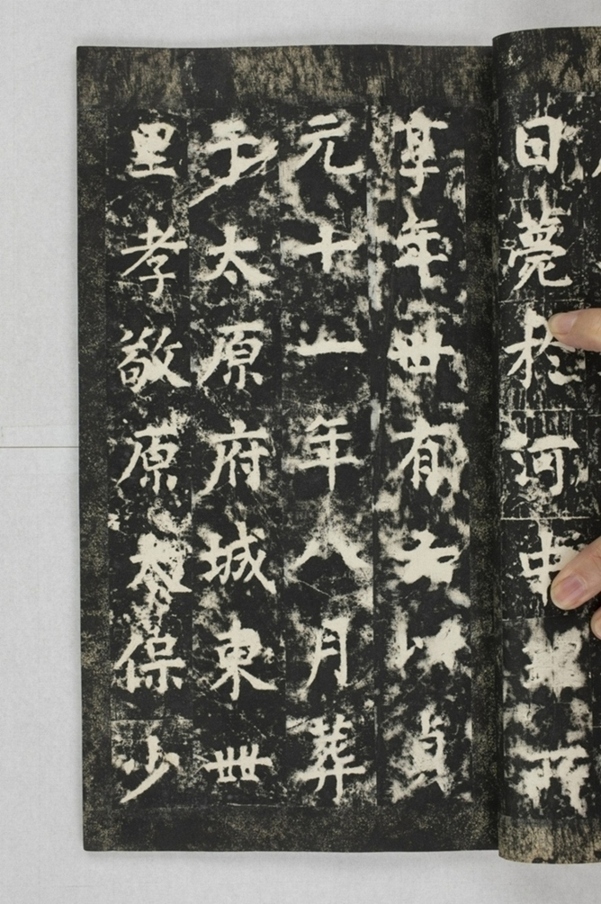 日薨於河中
享年卅有六以貞
元十一年八月葬
于太原府城東卌
里孝敬原太保少